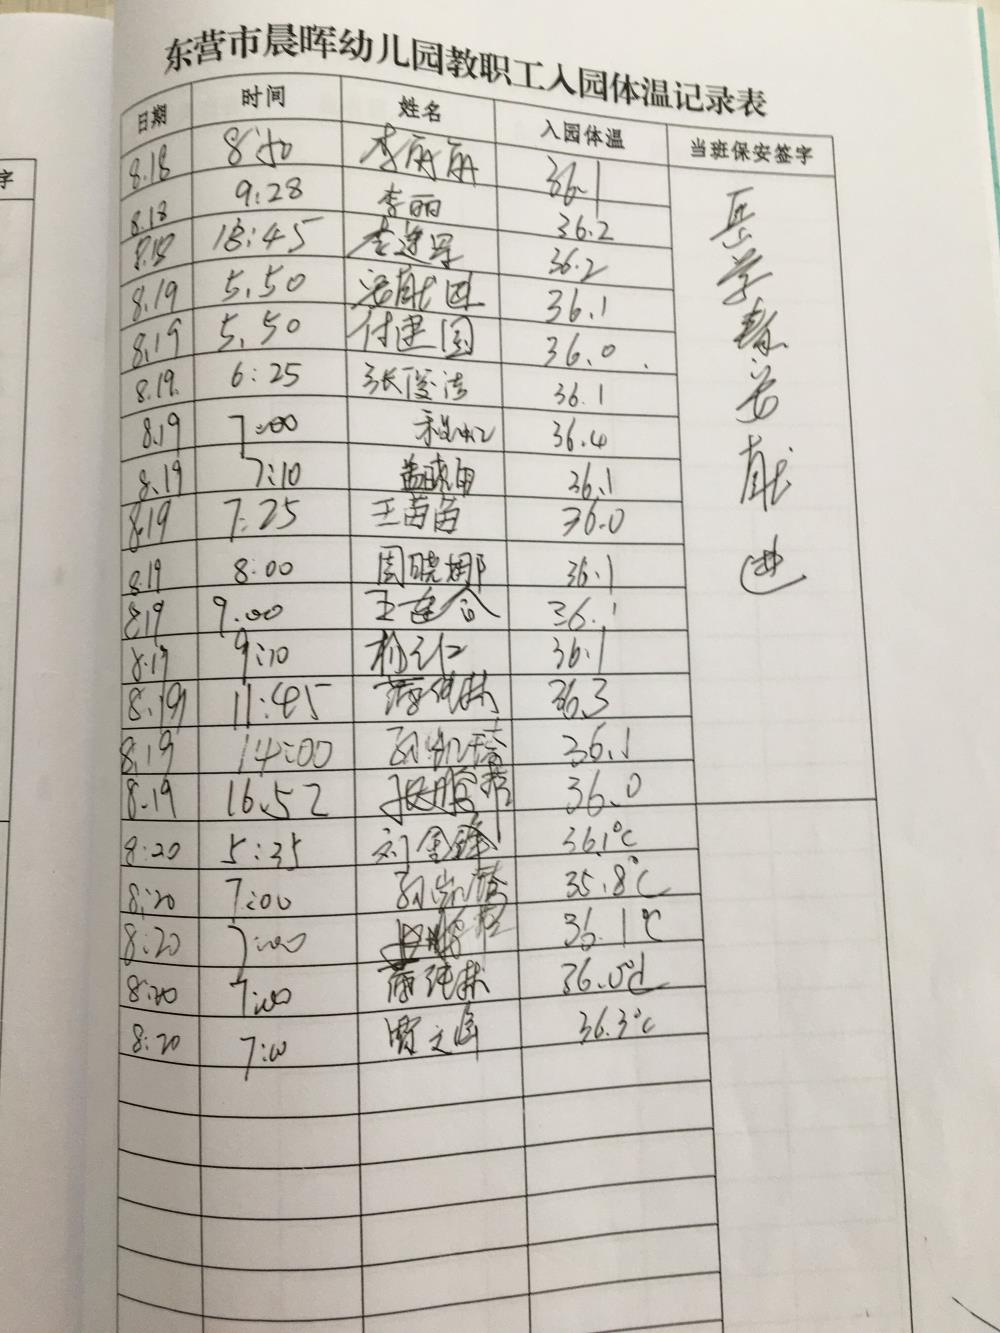 东营市晨晖幼儿园教职工入园体温记录表
日期 时间 姓名 入园体温 当班保安签字
8.18 李丽丽 36.1
8.18 9:28 李丽 36.2
8.18 18:45 36.2
8.19 5.50 36.1
8.19 5.50 付建国 36.0
8.19. 6:25 张俊洁 36.1
8.19 7:00 36.4
8.19 7:10 36.1
8.19 7:25 王苗苗 36.0
8.19 8:00 周晓娜 36.1
8.19 9.00 36.1
8.19 9:10 36.1
8.19 11:45 36.3
8.19 14:00 36.1
8.19 16.52 36.0
8:20 5:35 36.1℃
8:20 7:00 35.8℃
8:20 7:00 36.1℃
8:20 7:00 36.0℃
8:20 7:00 贾文峰 36.3℃